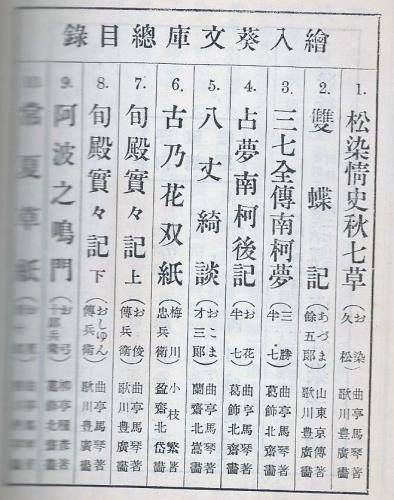 繪入葵文庫總目錄
1. 松染情史秋七草（お染 久松）曲亭馬琴著 歌川豊廣畵
2. 雙蝶記（あづま 餘五郎）山東京傳著 歌川豊國畵
3. 三七全傳南柯夢（三勝 半七）曲亭馬琴著 葛飾北齋畵
4. 占夢南柯後記（お花 半七）曲亭馬琴著 葛飾北齋畵
5. 八丈綺談（おこま 才三郎）曲亭馬琴著 蘭齋北嵩畵
6. 古乃花双紙（梅川 忠兵衛）小枝繁著 盈齋北岱畵
7. 旬殿實々記 上（お俊 傳兵衛）曲亭馬琴著 歌川豊廣畵
8. 旬殿實々記 下（おしゅん 傳兵衛）曲亭馬琴著 歌川豊廣畵
9. 阿波之鳴門（お弓 十郎兵衛）柳亭種彦著 葛飾北齋畵
常夏草紙